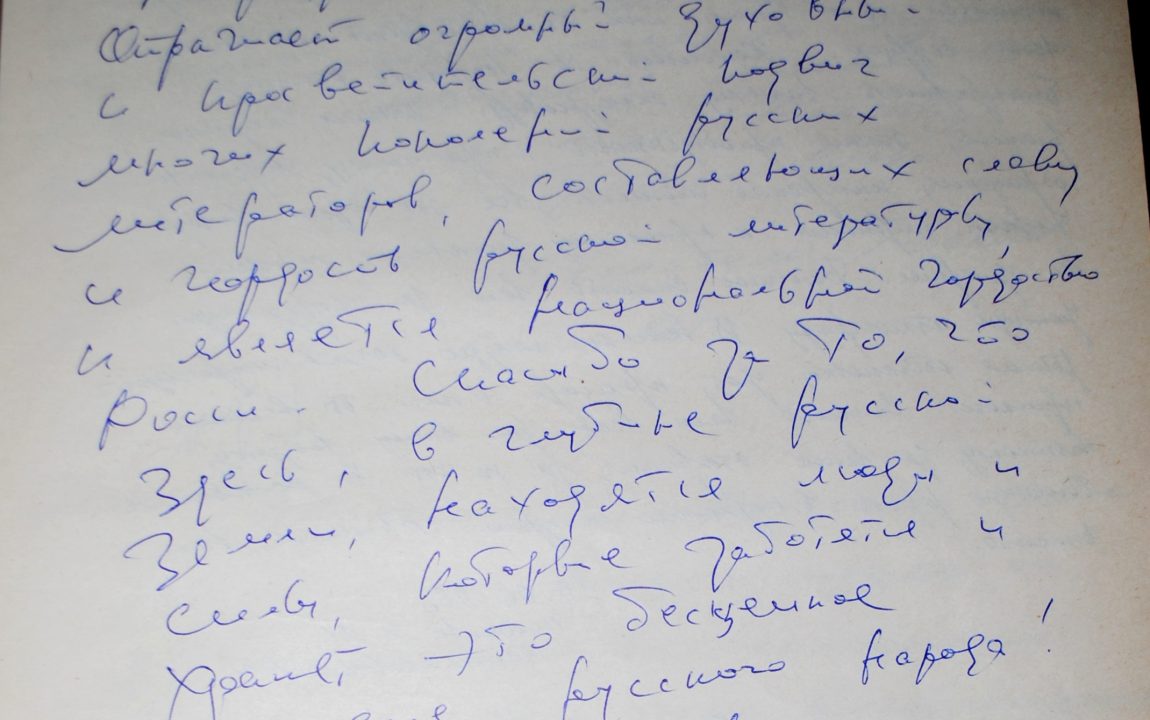 Отражает огромный духовный
и просветительский подвиг
многих поколений русских
литераторов, составляющих славу
и гордость русской литературы,
и является национальной гордостью
России. Спасибо за то, что
здесь, в глубине русской
земли, находятся люди и
силы, которые заботятся и
хранят это бесценное
русского народа!